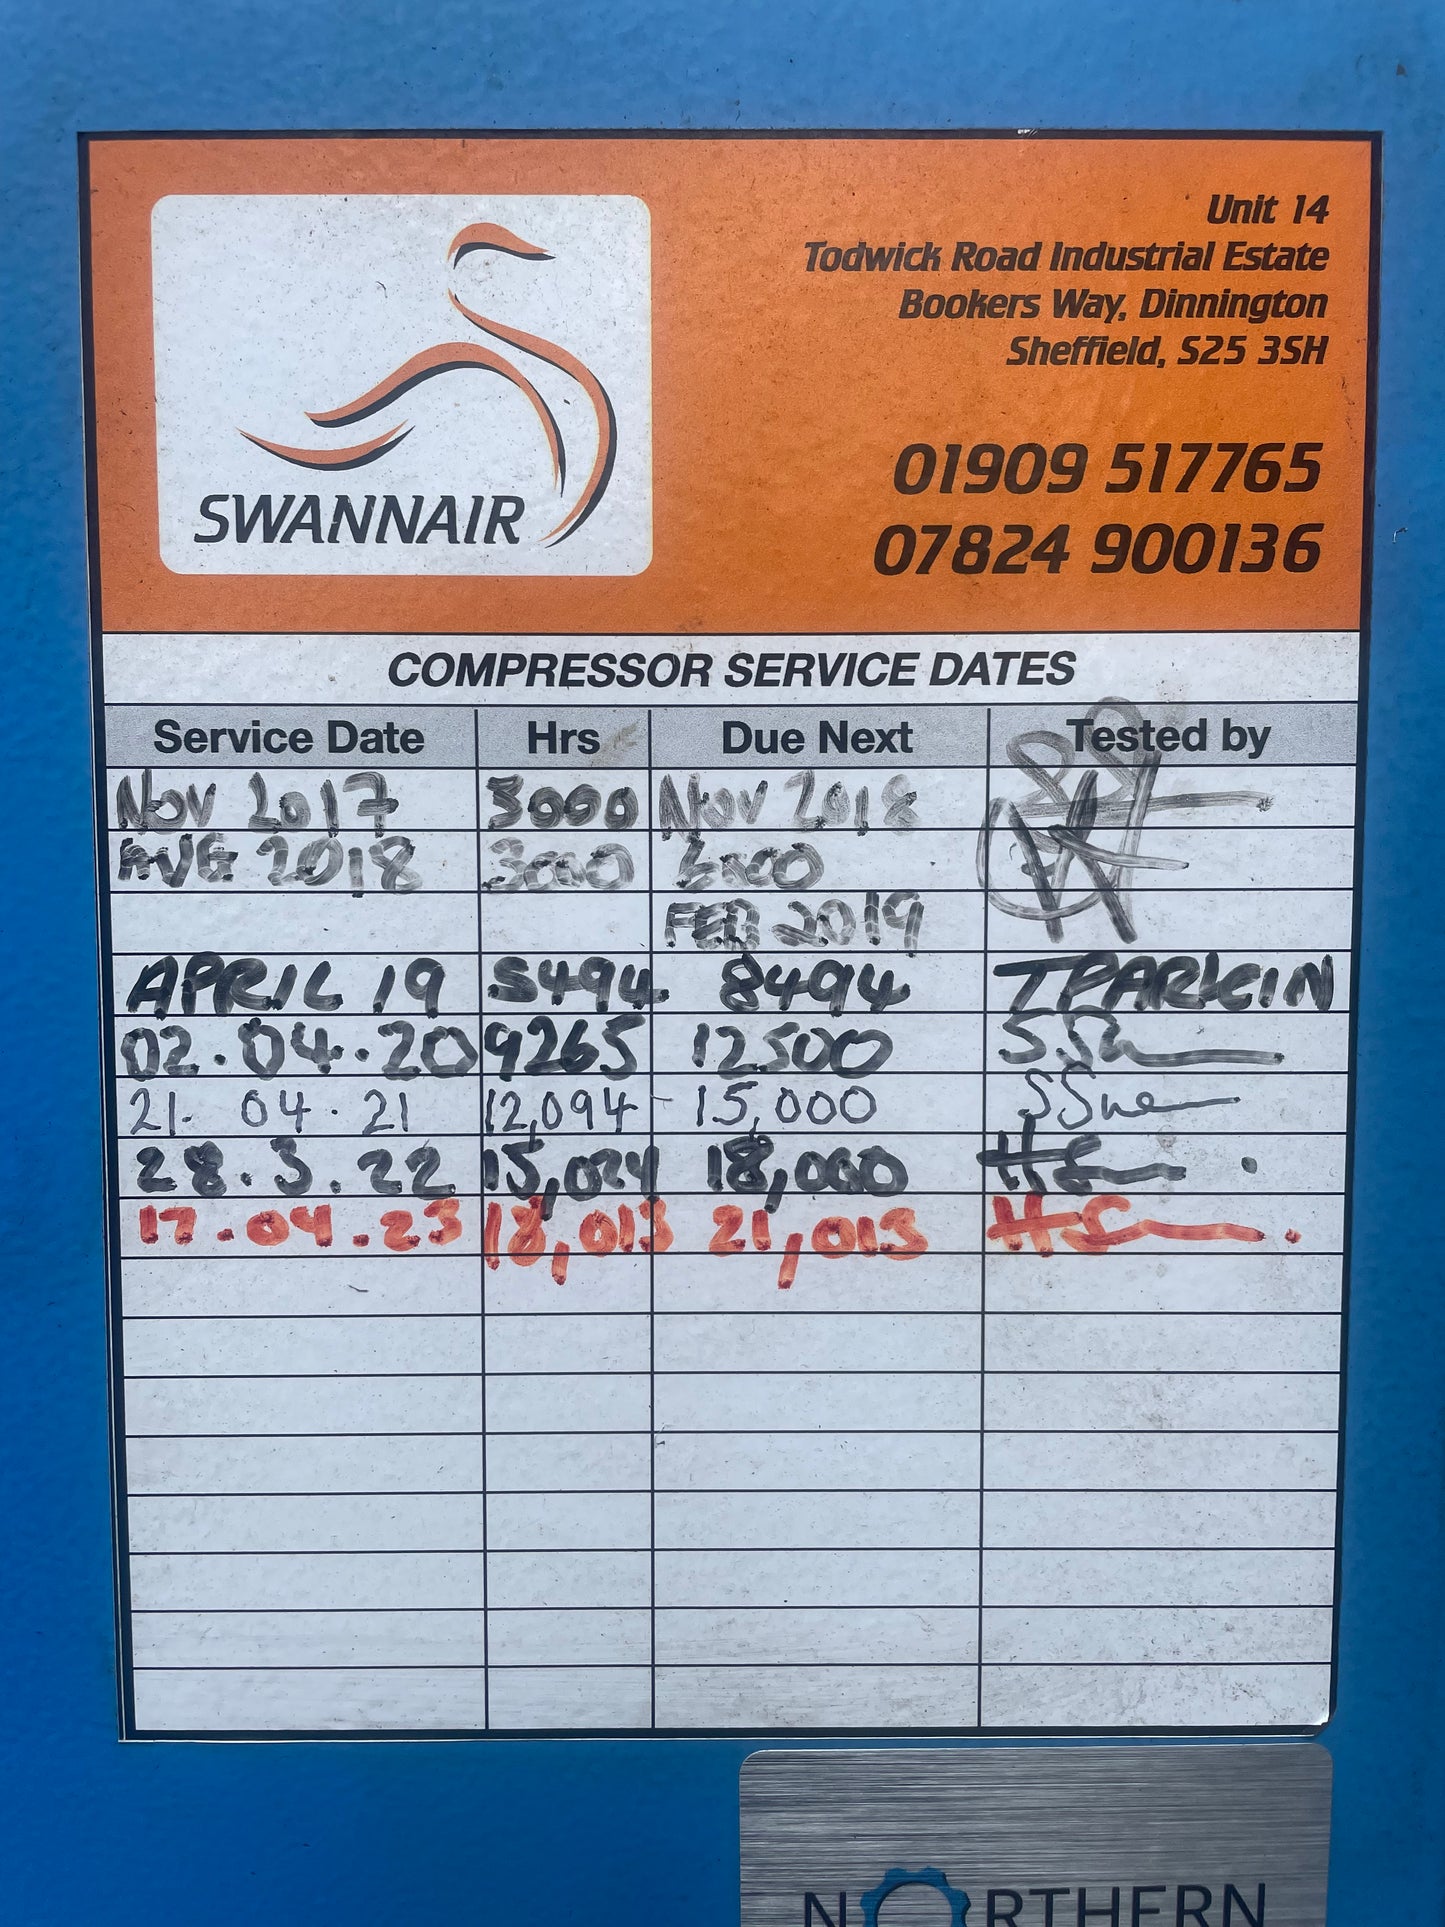 Unit 14
Todwick Road Industrial Estate
Bookers Way, Dinnington
Sheffield, S25 3SH
01909 517765
07824 900136
SWANNAIR
COMPRESSOR SERVICE DATES
Service Date Hrs Due Next Tested by
NOV 2017 3000 NOV 2018
AUG 2018 3000 6000
FEB 2019
APRIL 19 5494 8494
02.04.20 9265 12500
21. 04. 21 12,094 15,000
28.3.22 15,024 18,000
17.04.23 18,013 21,013
NORTHERN